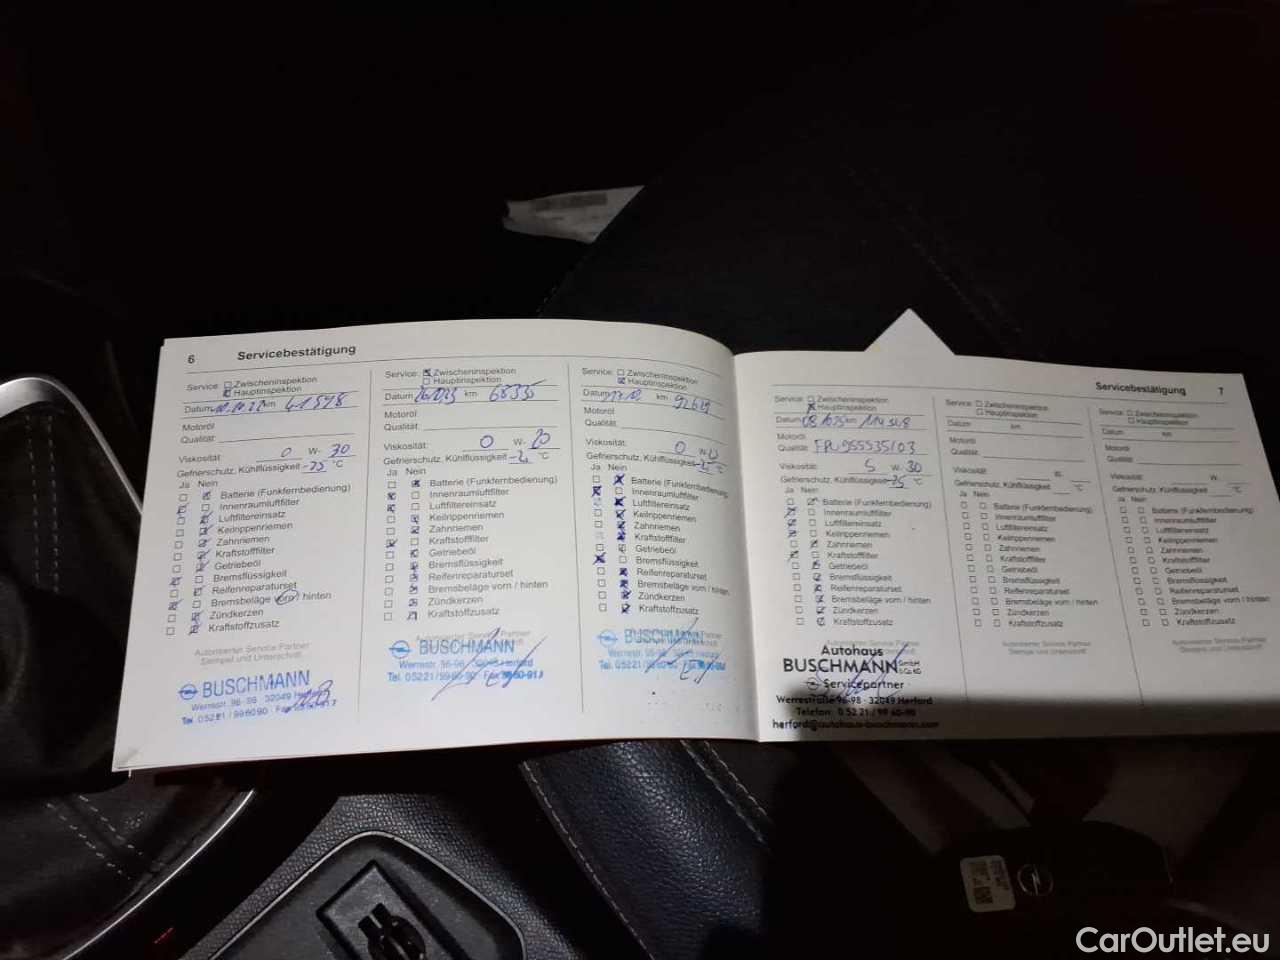 6 Servicebestätigung
Service: Zwischeninspektion
Hauptinspektion
Datum km 41598
Motoröl
Qualität:
Viskosität: 0 W- 30
Gefrierschutz, Kühlflüssigkeit -25 °C
Ja Nein
Batterie (Funkfernbedienung)
Innenraumluftfilter
Luftfiltereinsatz
Keilrippenriemen
Zahnriemen
Kraftstofffilter
Getriebeöl
Bremsflüssigkeit
Reifenreparaturset
Bremsbeläge vorn / hinten
Zündkerzen
Kraftstoffzusatz
Autorisierter Service Partner
Stempel und Unterschrift
BUSCHMANN
Werrestr. 96-98 · 32049 Herford
Tel. 05221/996090 ·
Service: Zwischeninspektion
Hauptinspektion
Datum km 68335
Motoröl
Qualität:
Viskosität: 0 W- 20
Gefrierschutz, Kühlflüssigkeit °C
Ja Nein
Batterie (Funkfernbedienung)
Innenraumluftfilter
Luftfiltereinsatz
Keilrippenriemen
Zahnriemen
Kraftstofffilter
Getriebeöl
Bremsflüssigkeit
Reifenreparaturset
Bremsbeläge vorn / hinten
Zündkerzen
Kraftstoffzusatz
Autorisierter Service Partner
BUSCHMANN
Werrestr. 96-98 · 32049 Herford
Tel. 05221/996090 · Fax
Service: Zwischeninspektion
Hauptinspektion
Datum km
Motoröl
Qualität:
Viskosität: 0
Gefrierschutz, Kühlflüssigkeit °C
Ja Nein
Batterie (Funkfernbedienung)
Innenraumluftfilter
Luftfiltereinsatz
Keilrippenriemen
Zahnriemen
Kraftstofffilter
Getriebeöl
Bremsflüssigkeit
Reifenreparaturset
Bremsbeläge vorn / hinten
Zündkerzen
Kraftstoffzusatz
BUSCHMANN
Tel. 05221/996090
Servicebestätigung 7
Service: Zwischeninspektion
Hauptinspektion
Datum km
Motoröl
Qualität:
Viskosität: 5 W- 30
Gefrierschutz, Kühlflüssigkeit °C
Ja Nein
Batterie (Funkfernbedienung)
Innenraumluftfilter
Luftfiltereinsatz
Keilrippenriemen
Zahnriemen
Kraftstofffilter
Getriebeöl
Bremsflüssigkeit
Reifenreparaturset
Bremsbeläge vorn / hinten
Zündkerzen
Kraftstoffzusatz
Autorisierter Service Partner
Autohaus
BUSCHMANN GmbH & Co KG
Servicepartner
Werrestraße 96-98 · 32049 Herford
Telefon 0 52 21 / 99 60-90
herford@autohaus-buschmann.com
Service: Zwischeninspektion
Hauptinspektion
Datum km
Motoröl
Qualität:
Viskosität: W-
Gefrierschutz, Kühlflüssigkeit °C
Ja Nein
Batterie (Funkfernbedienung)
Innenraumluftfilter
Luftfiltereinsatz
Keilrippenriemen
Zahnriemen
Kraftstofffilter
Getriebeöl
Bremsflüssigkeit
Reifenreparaturset
Bremsbeläge vorn / hinten
Zündkerzen
Kraftstoffzusatz
Autorisierter Service Partner
Stempel und Unterschrift
Service: Zwischeninspektion
Hauptinspektion
Datum km
Motoröl
Qualität:
Viskosität: W-
Gefrierschutz, Kühlflüssigkeit °C
Ja Nein
Batterie (Funkfernbedienung)
Innenraumluftfilter
Luftfiltereinsatz
Keilrippenriemen
Zahnriemen
Kraftstofffilter
Getriebeöl
Bremsflüssigkeit
Reifenreparaturset
Bremsbeläge vorn / hinten
Zündkerzen
Kraftstoffzusatz
Autorisierter Service Partner
Stempel und Unterschrift
CarOutlet.eu